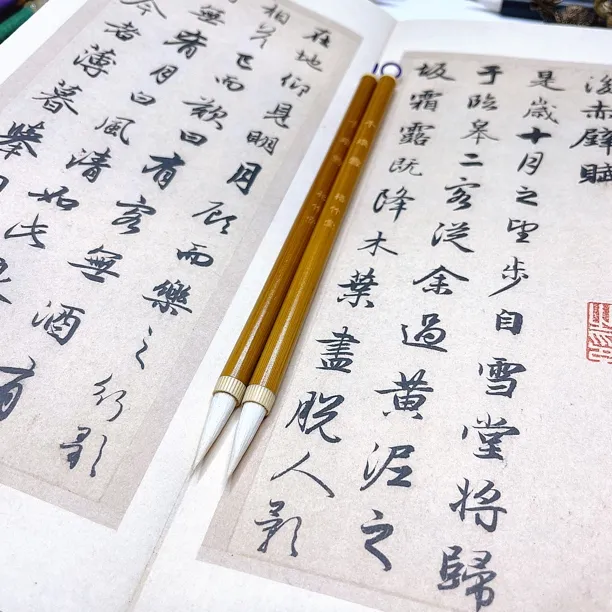 後赤壁賦
是歲十月之望步自雪堂將歸
于臨皋二客從余過黃泥之
坂霜露既降木葉盡脫人影
在地仰見明月顧而樂之行歌
相答已而歎曰有客無酒有
無肴月白風清如此良
今者薄暮舉